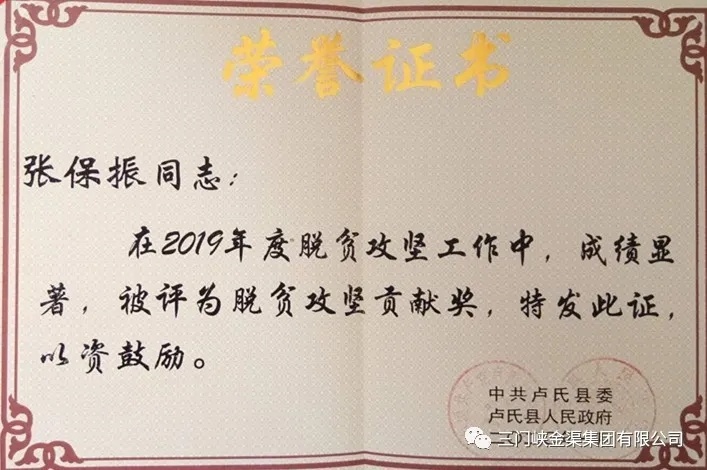 荣誉证书
张保振同志：
在2019年度脱贫攻坚工作中，成绩显
著，被评为脱贫攻坚贡献奖，特发此证，
以资鼓励。
中共卢氏县委
卢氏县人民政府
三门峡金渠集团有限公司